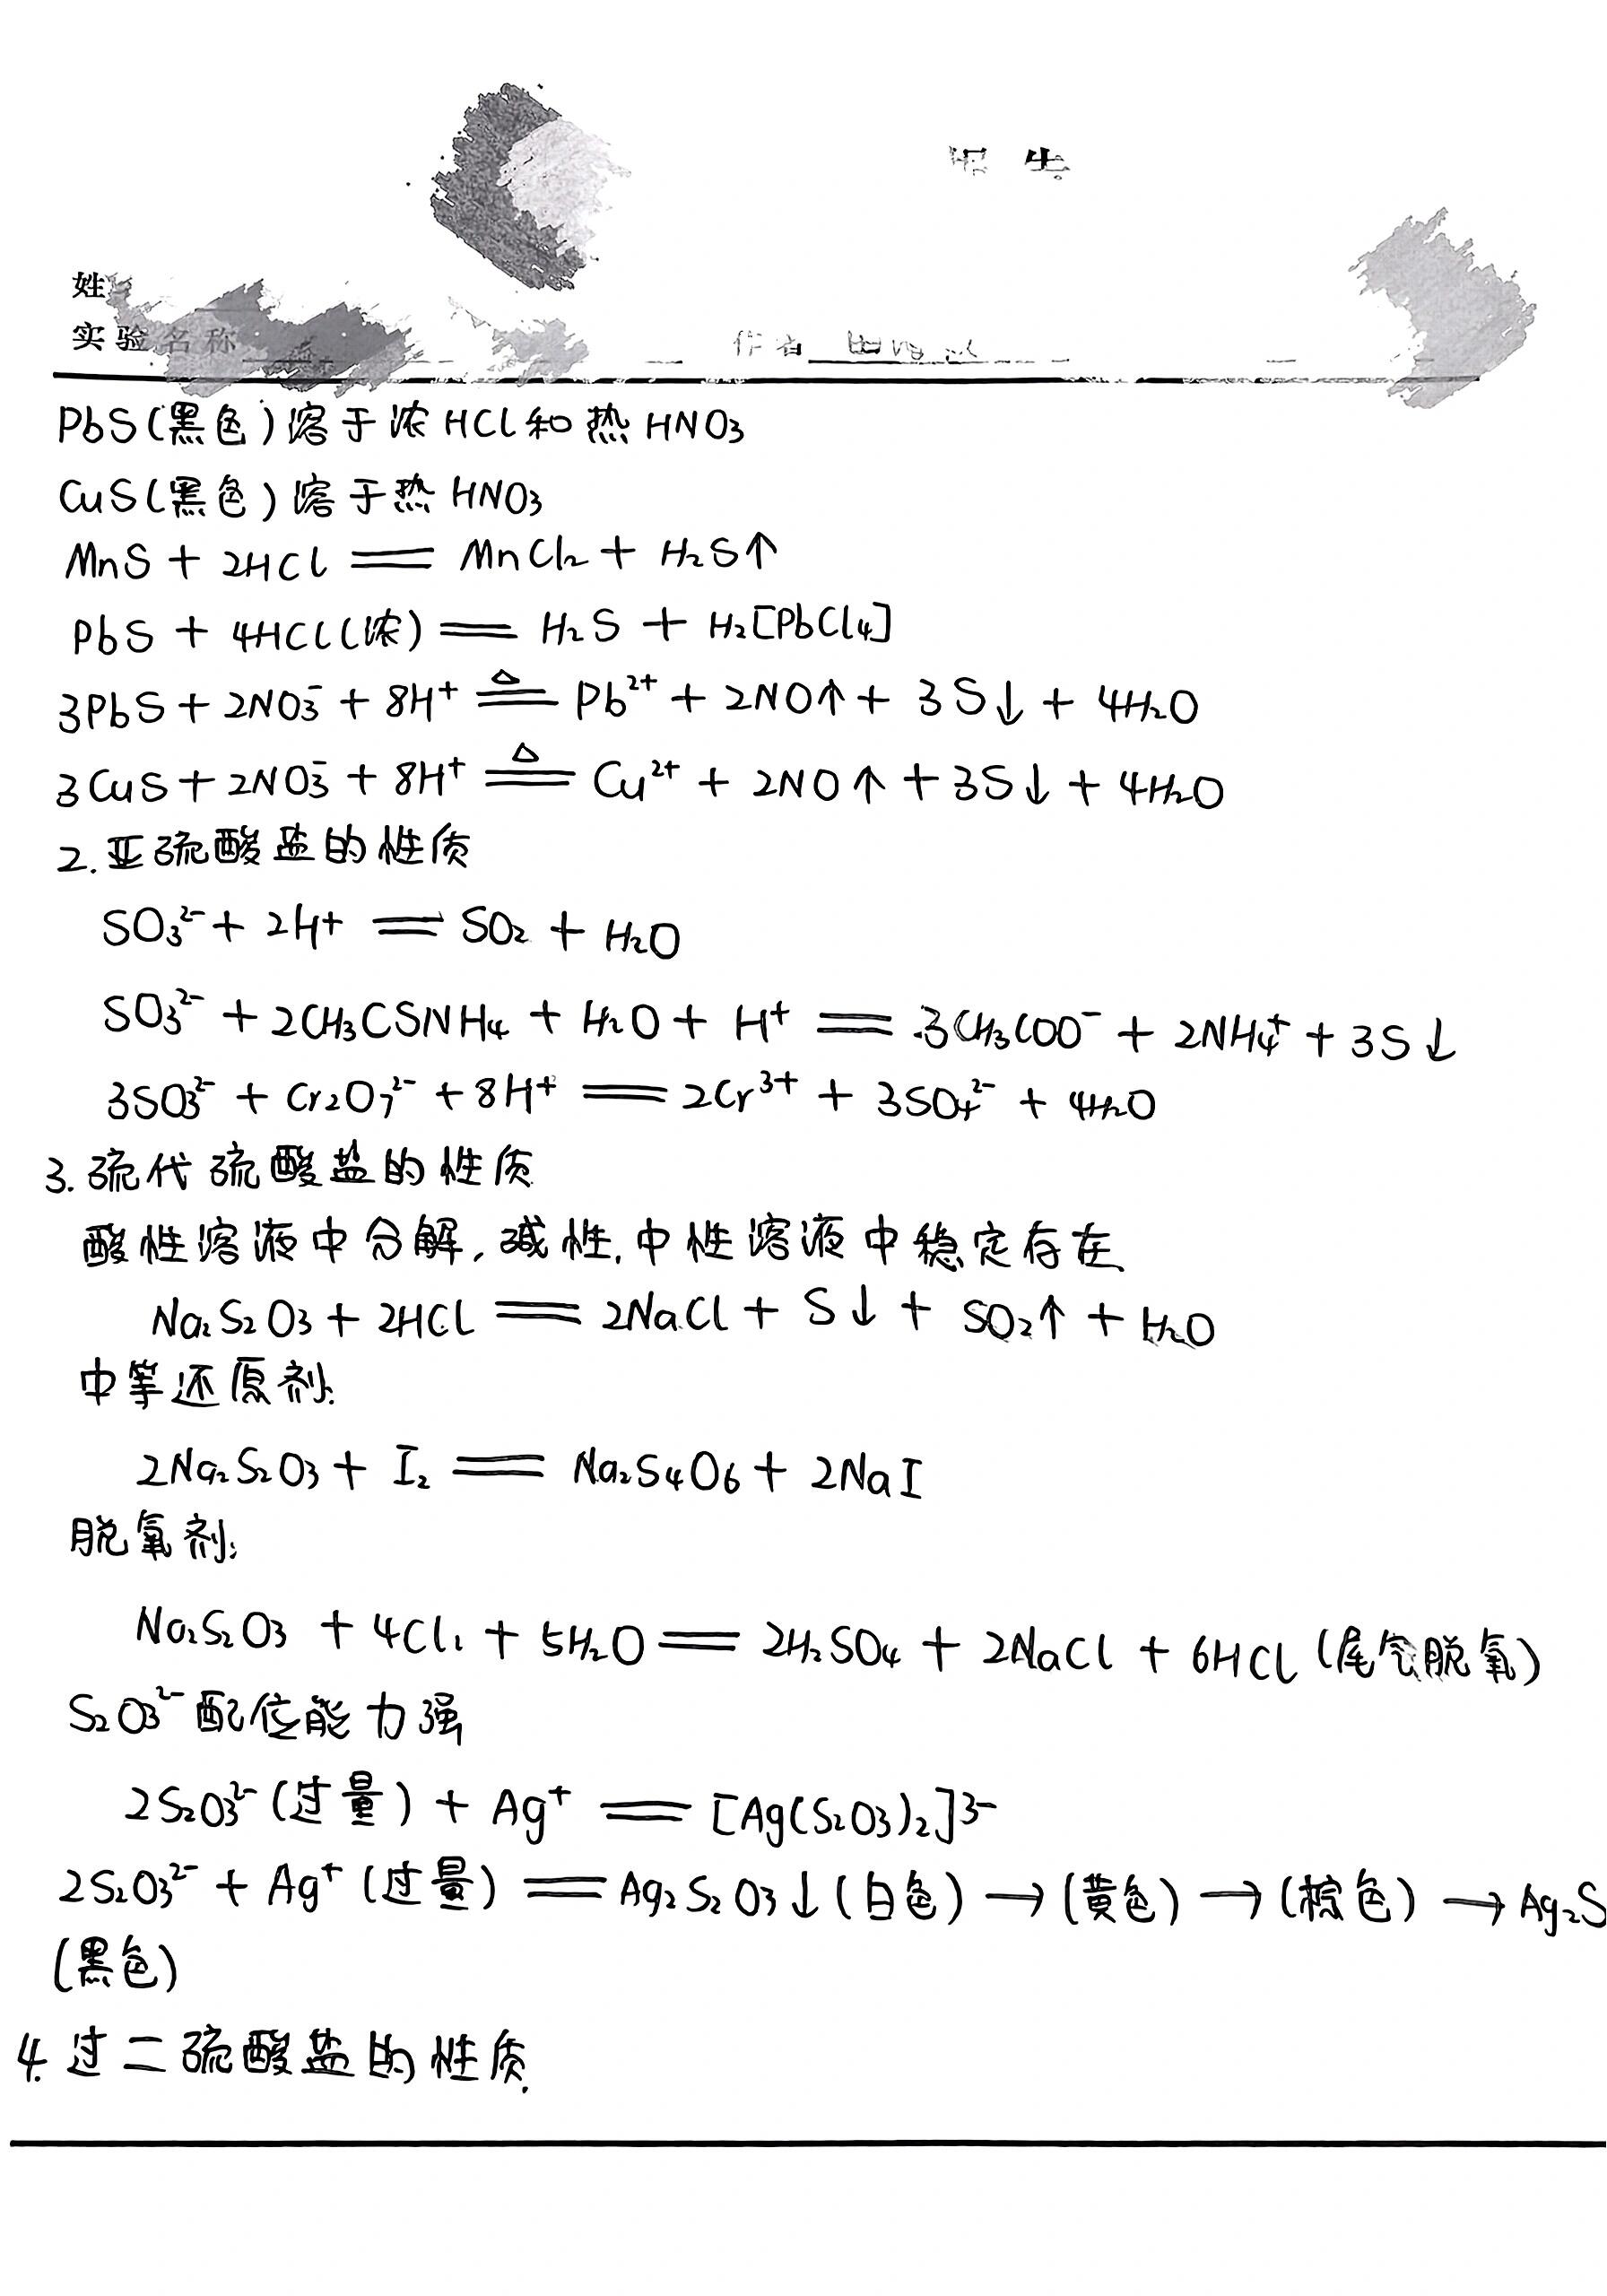 姓
实验名称
PbS(黑色)溶于浓HCl和热HNO₃
CuS(黑色)溶于热HNO₃
MnS + 2HCl == MnCl₂ + H₂S↑
PbS + 4HCl(浓) == H₂S + H₂[PbCl₄]
3PbS + 2NO₃⁻ + 8H⁺ =△= Pb²⁺ + 2NO↑ + 3S↓ + 4H₂O
3CuS + 2NO₃⁻ + 8H⁺ =△= Cu²⁺ + 2NO↑ + 3S↓ + 4H₂O
2.亚硫酸盐的性质
SO₃²⁻ + 2H⁺ == SO₂ + H₂O
SO₃²⁻ + 2CH₃CSNH₄ + H₂O + H⁺ == 3CH₃COO⁻ + 2NH₄⁺ + 3S↓
3SO₃²⁻ + Cr₂O₇²⁻ + 8H⁺ == 2Cr³⁺ + 3SO₄²⁻ + 4H₂O
3.硫代硫酸盐的性质
酸性溶液中分解,碱性,中性溶液中稳定存在
Na₂S₂O₃ + 2HCl == 2NaCl + S↓ + SO₂↑ + H₂O
中等还原剂:
2Na₂S₂O₃ + I₂ == Na₂S₄O₆ + 2NaI
脱氧剂:
Na₂S₂O₃ + 4Cl₂ + 5H₂O == 2H₂SO₄ + 2NaCl + 6HCl (尾气脱氧)
S₂O₃²⁻配位能力强
2S₂O₃²⁻(过量) + Ag⁺ == [Ag(S₂O₃)₂]³⁻
2S₂O₃²⁻ + Ag⁺(过量) == Ag₂S₂O₃↓(白色) → (黄色) → (棕色) → Ag₂S
(黑色)
4.过二硫酸盐的性质.